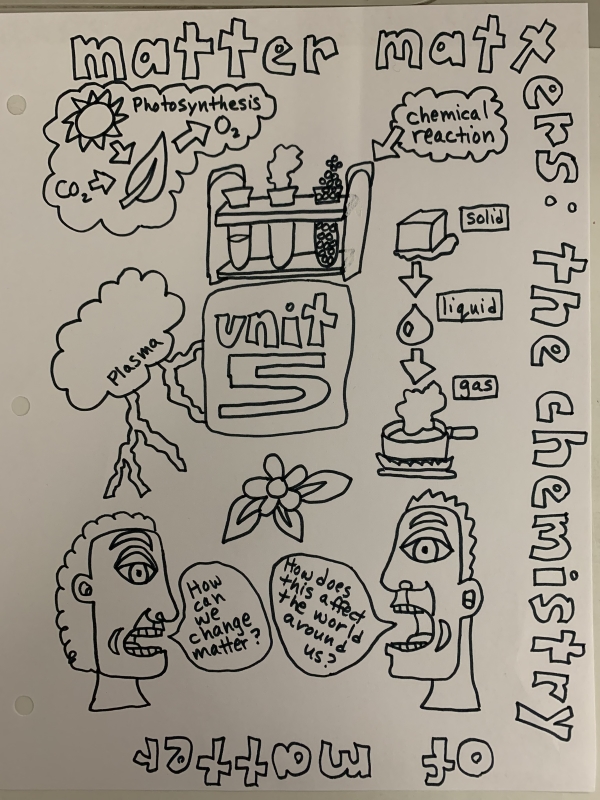 matter matters: the chemistry of matter
Photosynthesis
O₂
CO₂
chemical
reaction
solid
liquid
gas
Plasma
unit
5
How
can
we
change
matter?
How does
this affect
the world
around
us?